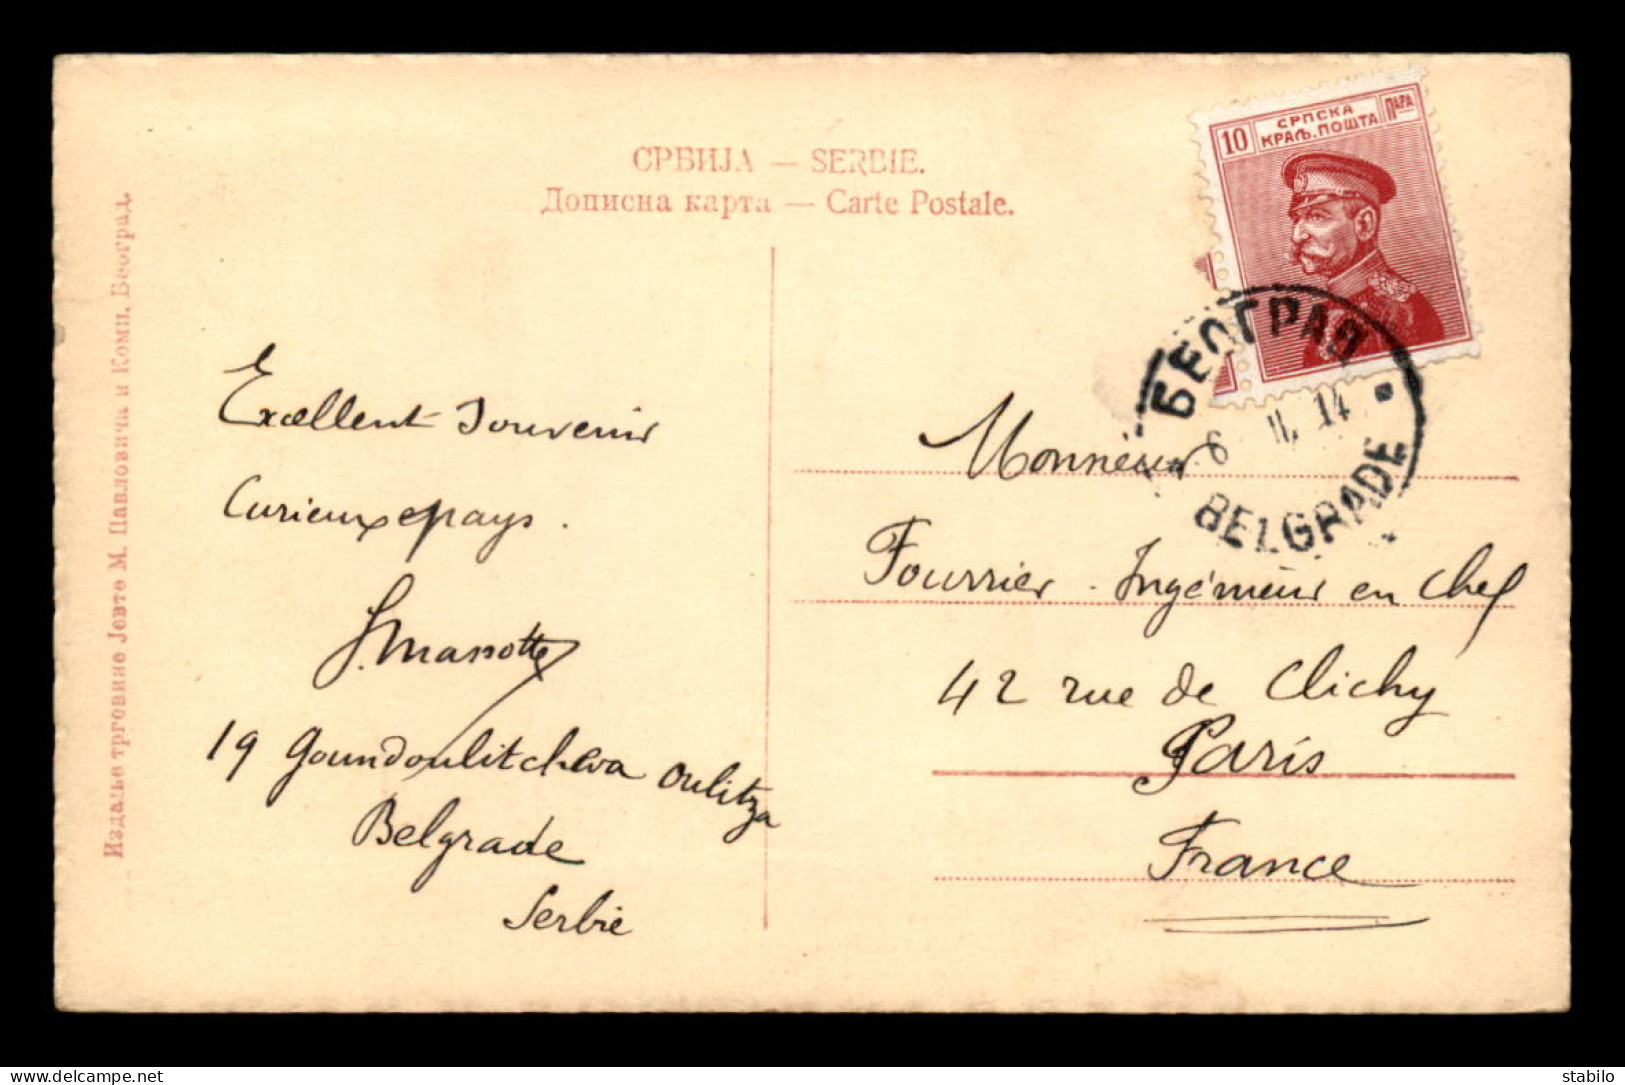 СРБИЈА — SERBIE.
Дописна карта — Carte Postale.
10 СРПСКА ПАРА
КРАЉ. ПОШТА
БЕОГРАД
6 II. 14
BELGRADE
Издање трговине Јевте М. Павловића и Комп. Београд.
Excellent Souvenir
Curieux pays.
19 Goundoulitcheva oulitza
Belgrade
Serbie
Monsieur
Fourrier - Ingénieur en Chef
42 rue de Clichy
Paris
France
stabilo